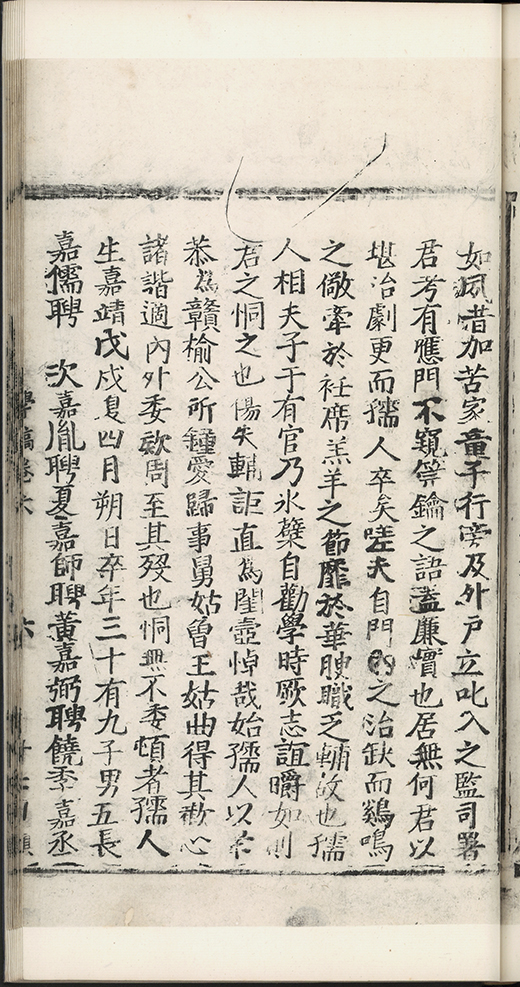 如夙昔加苦家童子行旁及外戶立叱入之監司署
君考有應門不窺筦鑰之語蓋廉實也居無何君以
堪治劇更而孺人卒矣嗟夫自門內之治缺而鷄鳴
之儆牽於衽席羔羊之節靡於華腴職乏輔故也孺
人相夫子于有官乃氷櫱自勸學時厥志誼皭如則
君之恫之也傷失輔詎直為閨壼悼哉始孺人以
恭為贛榆公所鍾愛歸事舅姑曾王姑曲得其歡心
諸諧適內外委欵周至其歿也恫無不委頓者孺人
生嘉靖戊戌夏四月朔日卒年三十有九子男五長
嘉儒聘 次嘉胤聘夏嘉師聘黃嘉弼聘饒季嘉丞
學稿卷六 六